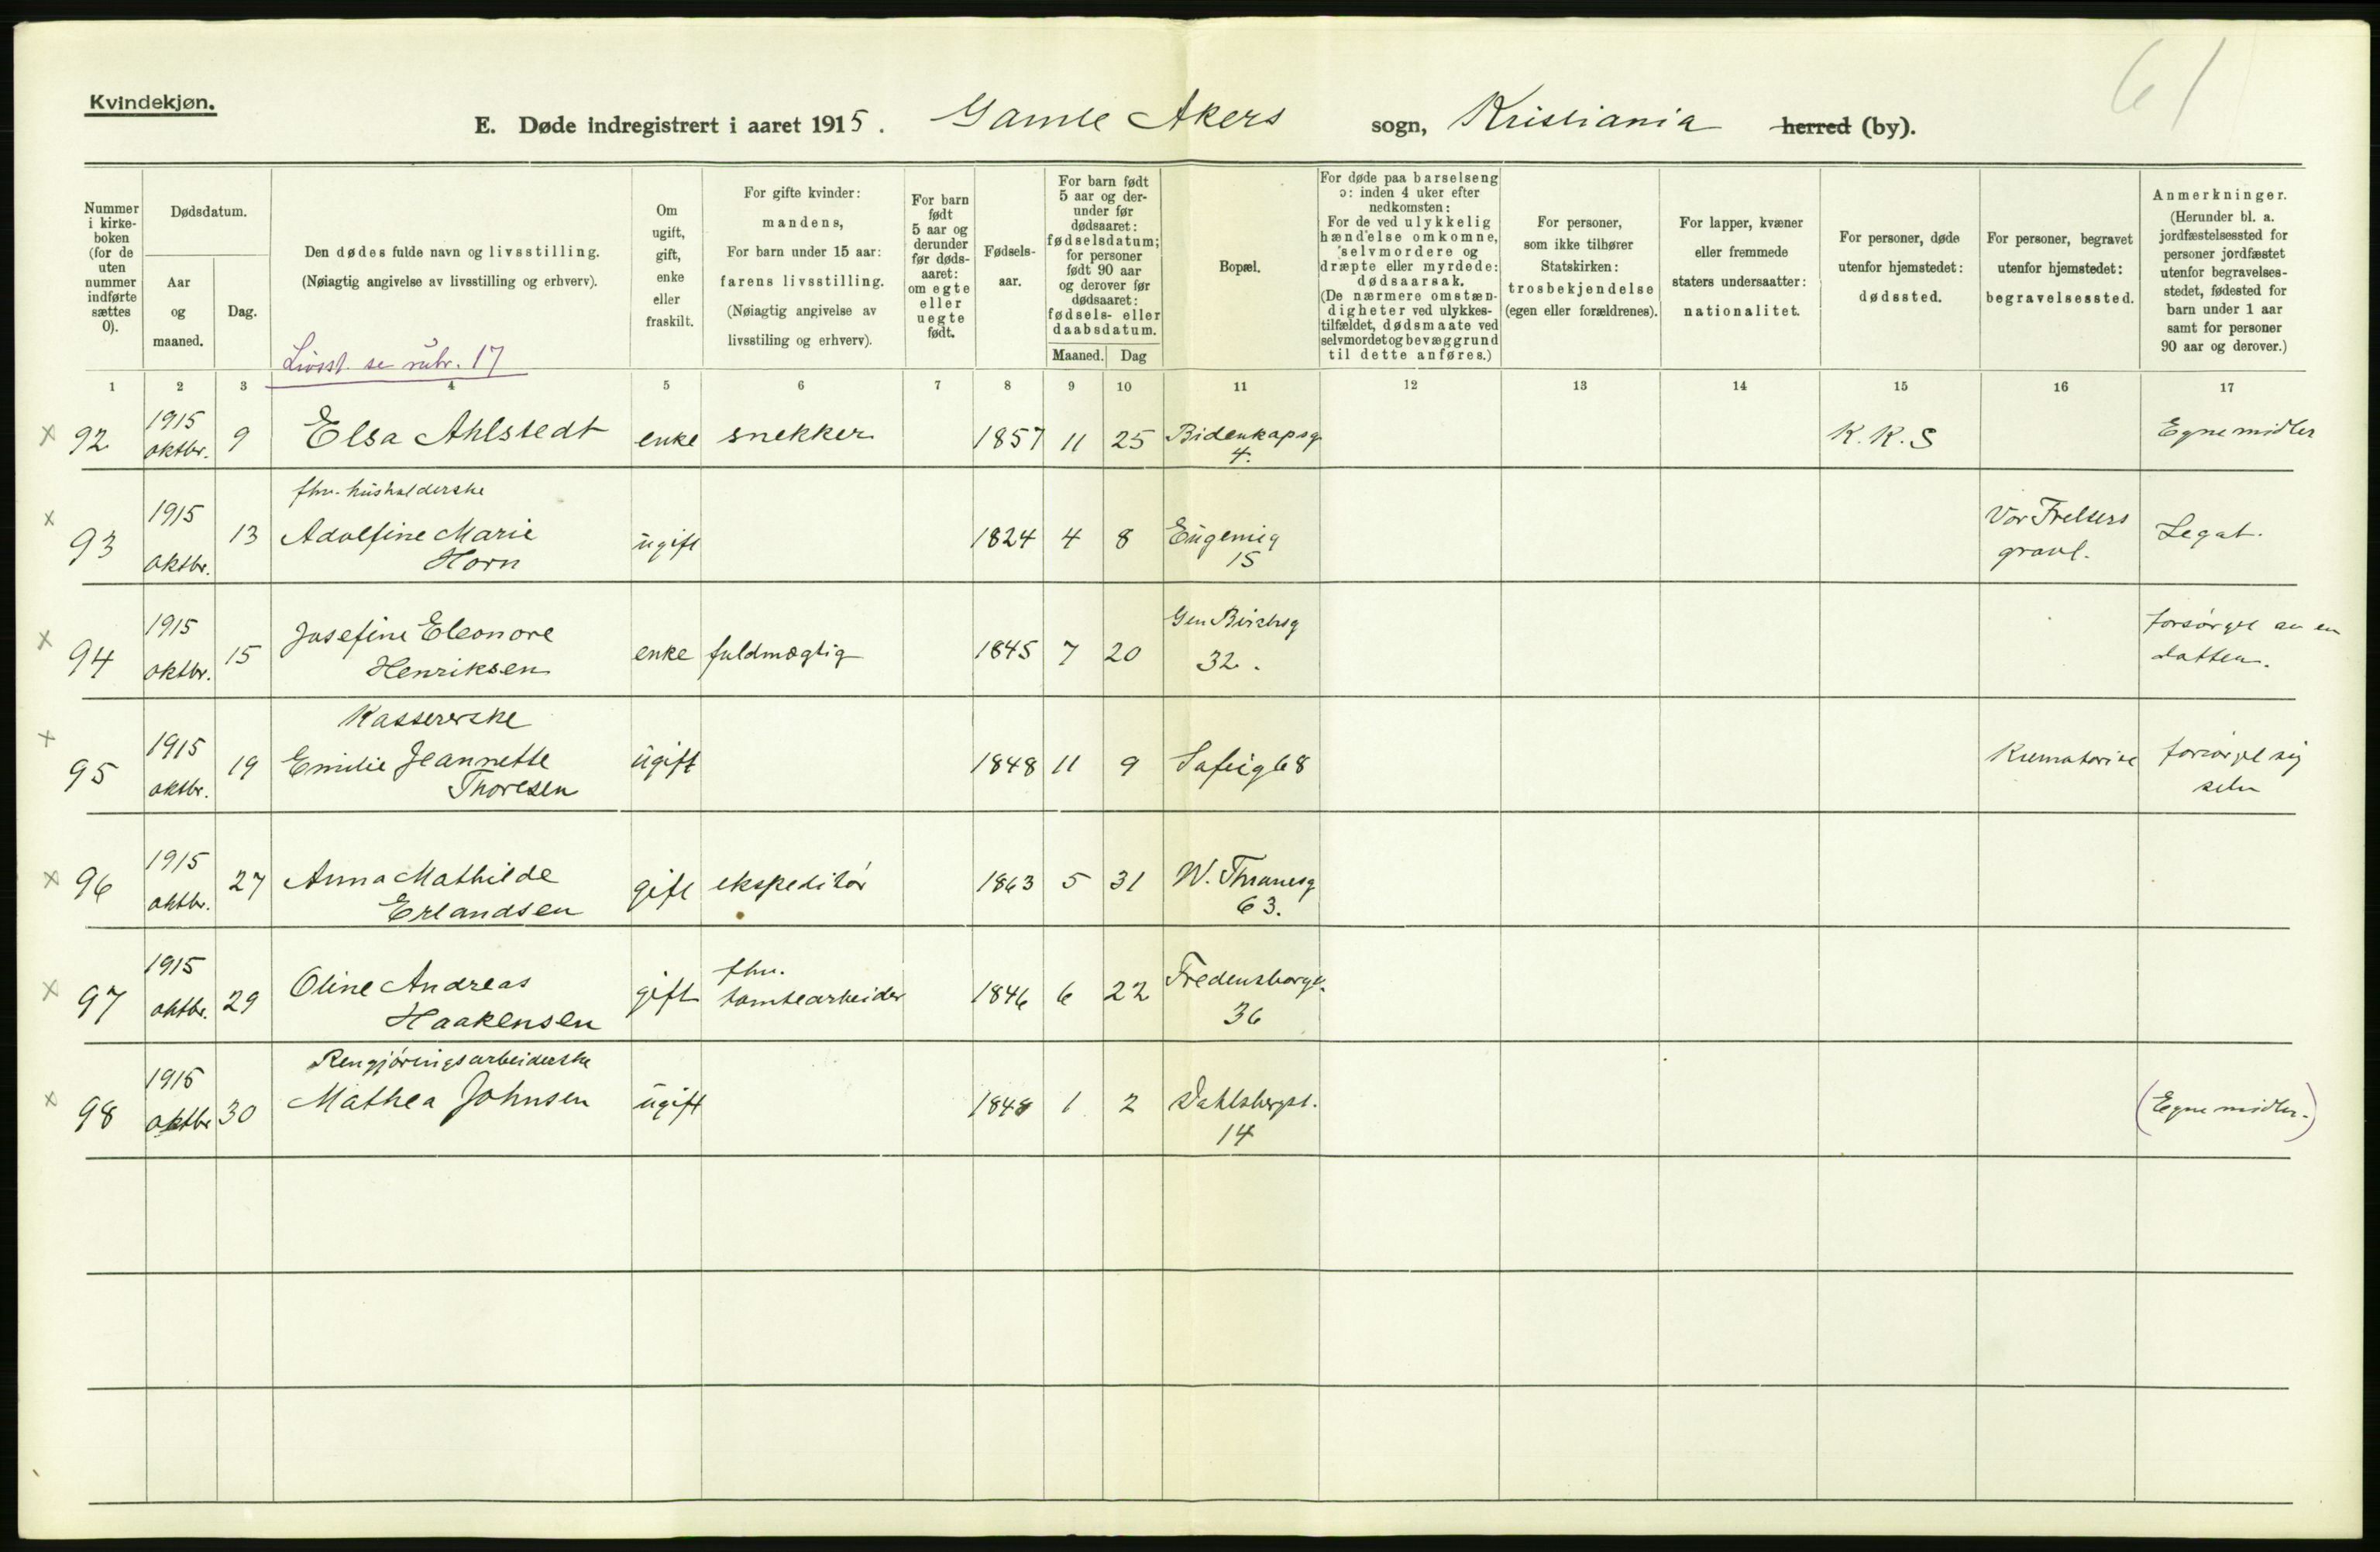 61
Kvindekjøn.
E. Døde indregistrert i aaret 1915. Gamle Akers sogn, Kristiania herred (by).
Nummer i kirke-boken (for de uten nummer indførte sættes 0).
Dødsdatum.
Aar og maaned.
Dag.
Den dødes fulde navn og livsstilling.
(Nøiagtig angivelse av livsstilling og erhverv).
Livsst. se rubr. 17
Om ugift, gift, enke eller fraskilt.
For gifte kvinder: mandens,
For barn under 15 aar: farens livsstilling.
(Nøiagtig angivelse av livsstiling og erhverv).
For barn født 5 aar og derunder før døds-aaret: om egte eller uegte født.
Fødsels-aar.
For barn født 5 aar og der-under før dødsaaret: fødselsdatum; for personer født 90 aar og derover før dødsaaret: fødsels- eller daabsdatum.
Maaned. Dag
Bopæl.
For døde paa barselseng ɔ: inden 4 uker efter nedkomsten:
For de ved ulykkelig hændelse omkomne, selvmordere og dræpte eller myrdede: dødsaarsak.
(De nærmere omstæn-digheter ved ulykkes-tilfældet, dødsmaate ved selvmordet og bevæggrund til dette anføres.)
For personer, som ikke tilhører Statskirken: trosbekjendelse (egen eller forældrenes).
For lapper, kvæner eller fremmede staters undersaatter: nationalitet.
For personer, døde utenfor hjemstedet: dødssted.
For personer, begravet utenfor hjemstedet: begravelsessted.
Anmerkninger.
(Herunder bl. a. jordfæstelsessted for personer jordfæstet utenfor begravelses-stedet, fødested for barn under 1 aar samt for personer 90 aar og derover.)
1 2 3 4 5 6 7 8 9 10 11 12 13 14 15 16 17
x 92 1915 oktbr. 9 Elsa Ahlstedt enke snekker 1857 11 25 Bidenkapsg 4. K. K. S Egne midler
x 93 1915 oktbr. 13 fhv. husholderske Adolfine Marie Horn ugift 1824 4 8 Eugenig 15 Vor Frelsers gravl. Legat.
x 94 1915 oktbr. 15 Josefine Eleonore Henriksen enke fuldmægtig 1845 7 20 Gen Birchsg 32. forsørget av en datter.
x 95 1915 oktbr. 19 Kassererske Emilie Jeannette Thoresen ugift 1848 11 9 Sofieg 68 Krematoriet forsørget sig selv
x 96 1915 oktbr. 27 Anna Mathilde Erlandsen gift ekspeditør 1863 5 31 W. Thranesg 63.
x 97 1915 oktbr. 29 Oline Andreas Haakensen gift fhv. tomtearbeider 1846 6 22 Fredensborgv. 36
x 98 1915 oktbr 30 Rengjøringsarbeiderske Mathea Johnsen ugift 1848 1 2 Dahlsbergst. 14 (Egne midler.)